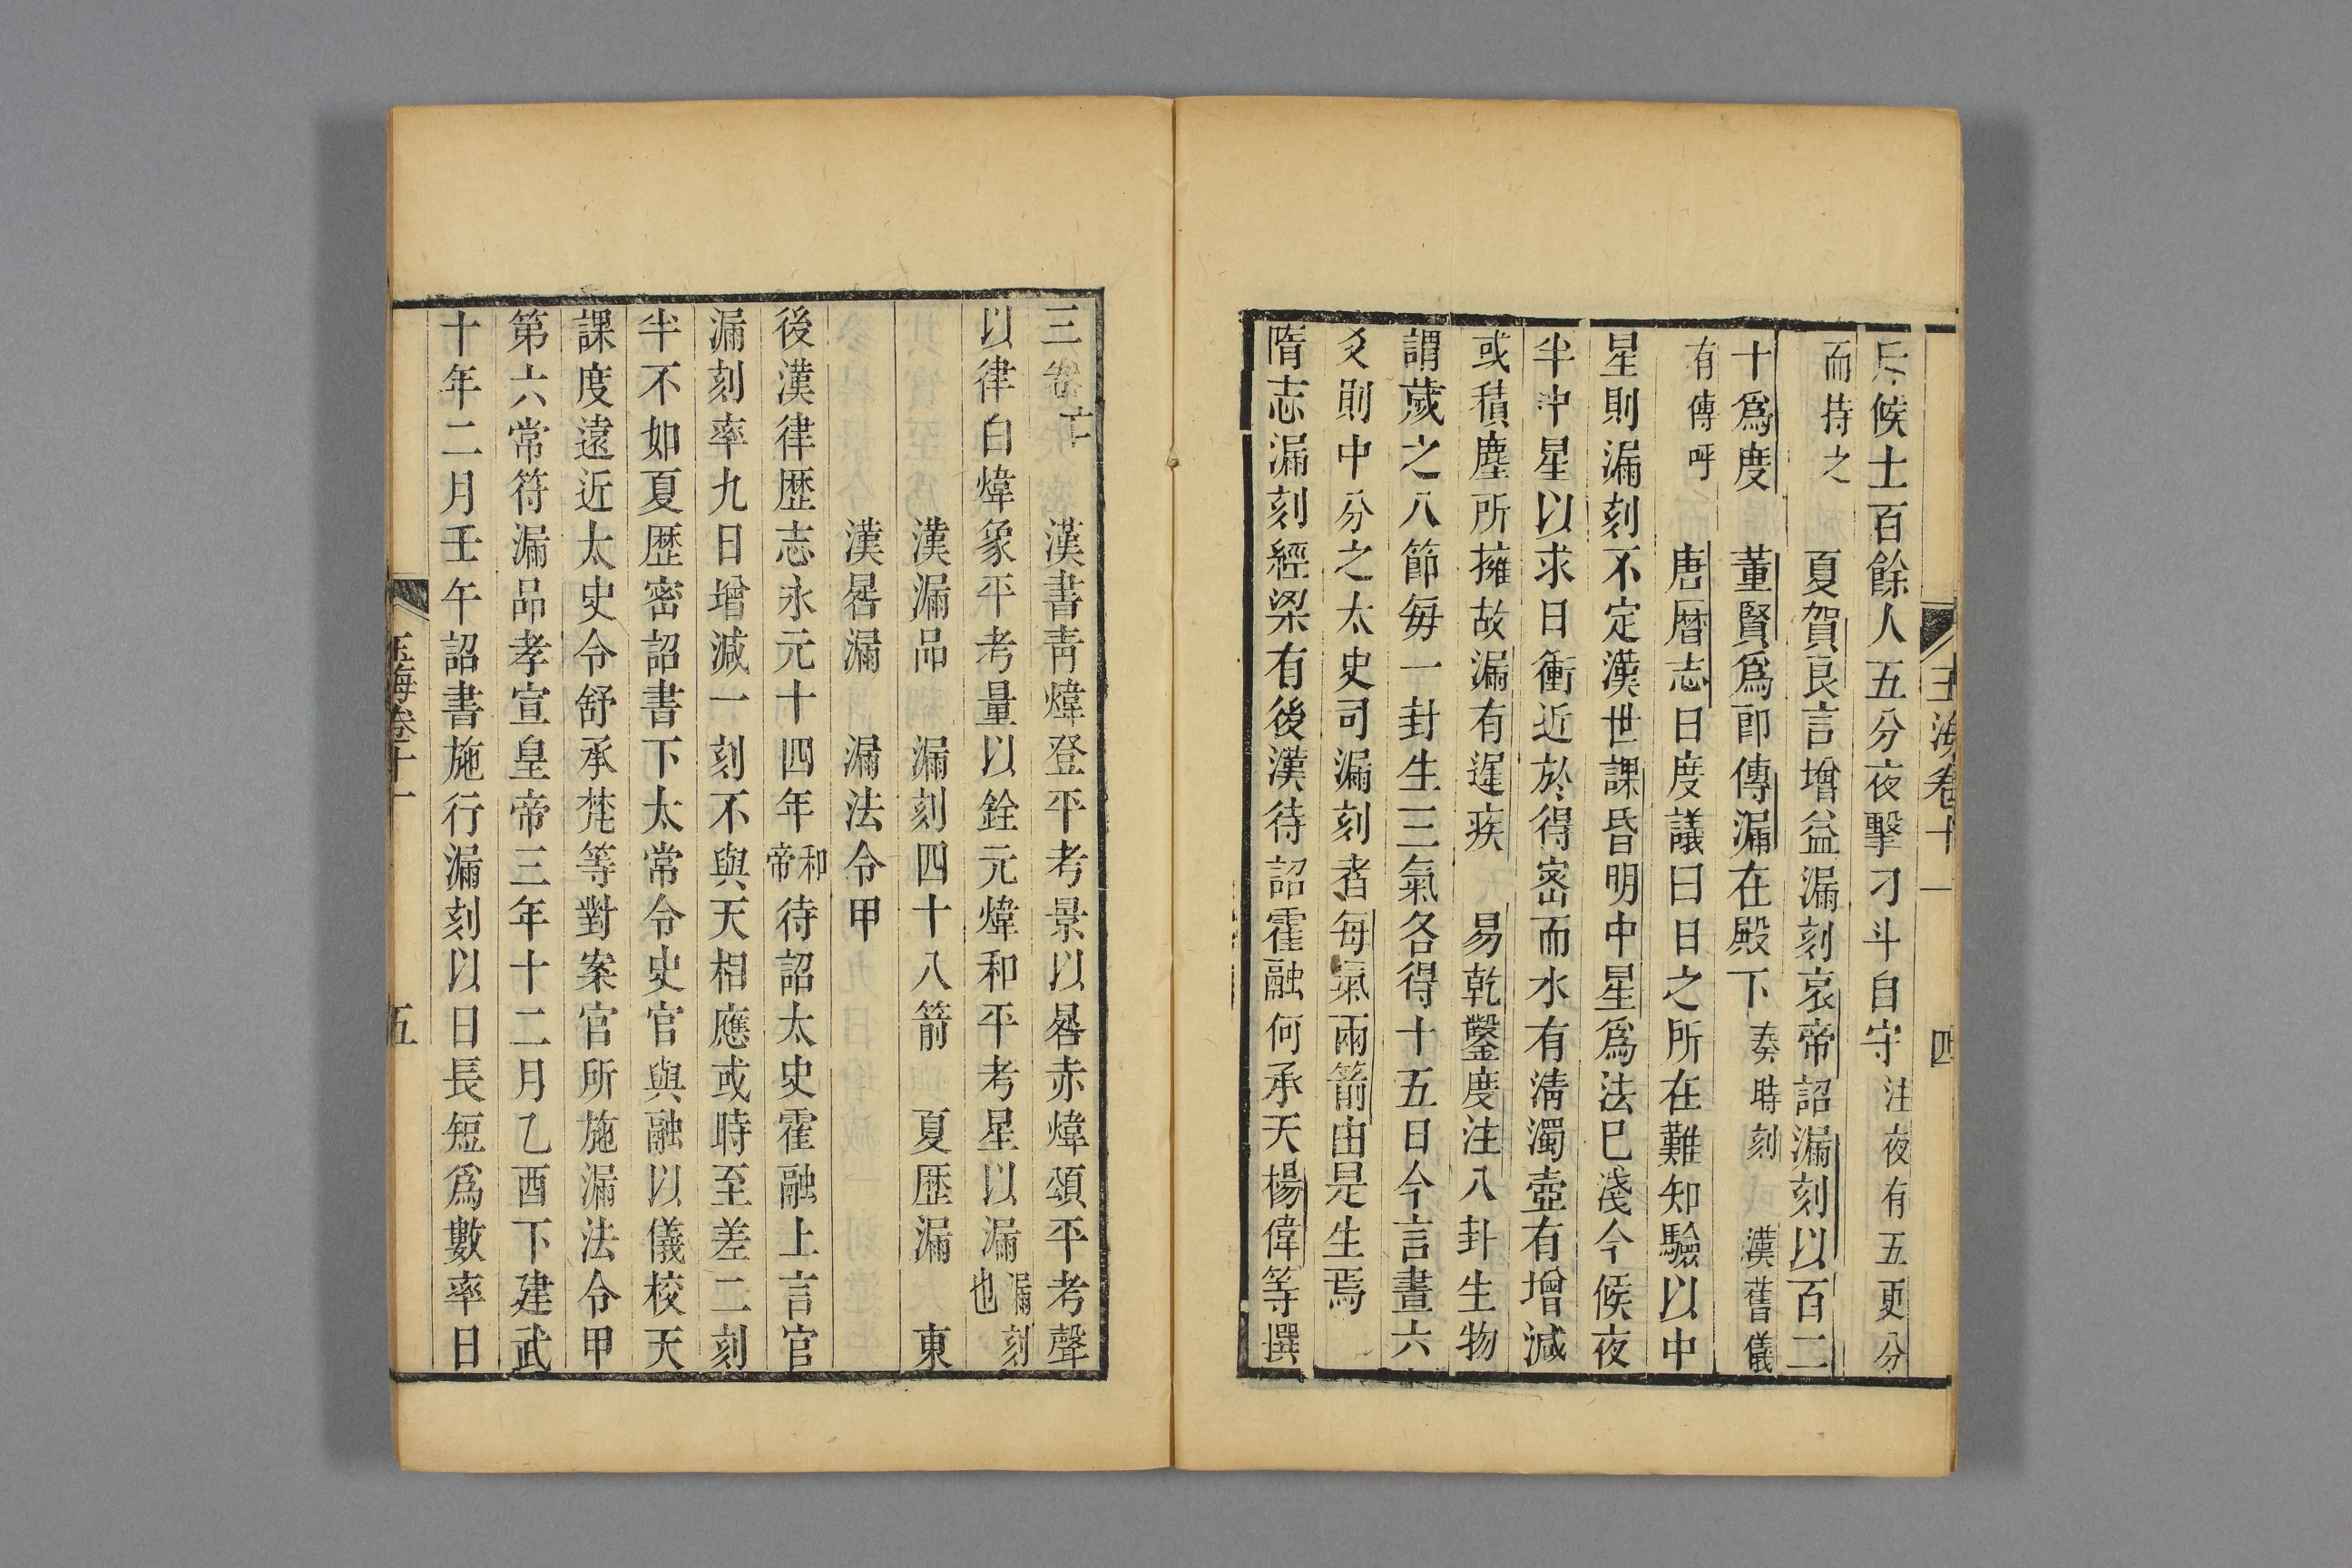 玉海卷十一 四
斥候士百餘人五分夜擊刁斗自守注夜有五更分
而持之 夏賀良言增益漏刻哀帝詔漏刻以百二
十爲度 董賢爲郎傳漏在殿下奏時刻 漢舊儀
有傳呼 唐曆志日度議曰日之所在難知驗以中
星則漏刻不定漢世課昏明中星爲法巳淺今候夜
半中星以求日衝近於得密而水有淸濁壺有增減
或積塵所擁故漏有遲疾 易乾鑿度注八卦生物
謂歲之八節每一卦生三氣各得十五日今言晝六
爻則中分之太史司漏刻者每氣兩箭由是生焉
隋志漏刻經梁有後漢待詔霍融何承天楊偉等撰
三卷亡 漢書靑煒登平考景以晷赤煒頌平考聲
以律白煒象平考量以銓元煒和平考星以漏漏刻也
漢漏品 漏刻四十八箭 夏歷漏 東
漢晷漏 漏法令甲
後漢律歷志永元十四年和帝待詔太史霍融上言官
漏刻率九日增減一刻不與天相應或時至差二刻
半不如夏歷密詔書下太常令史官與融以儀校天
課度遠近太史令舒承梵等對案官所施漏法令甲
第六常符漏品孝宣皇帝三年十二月乙酉下建武
十年二月壬午詔書施行漏刻以日長短爲數率日
玉海卷十一 五